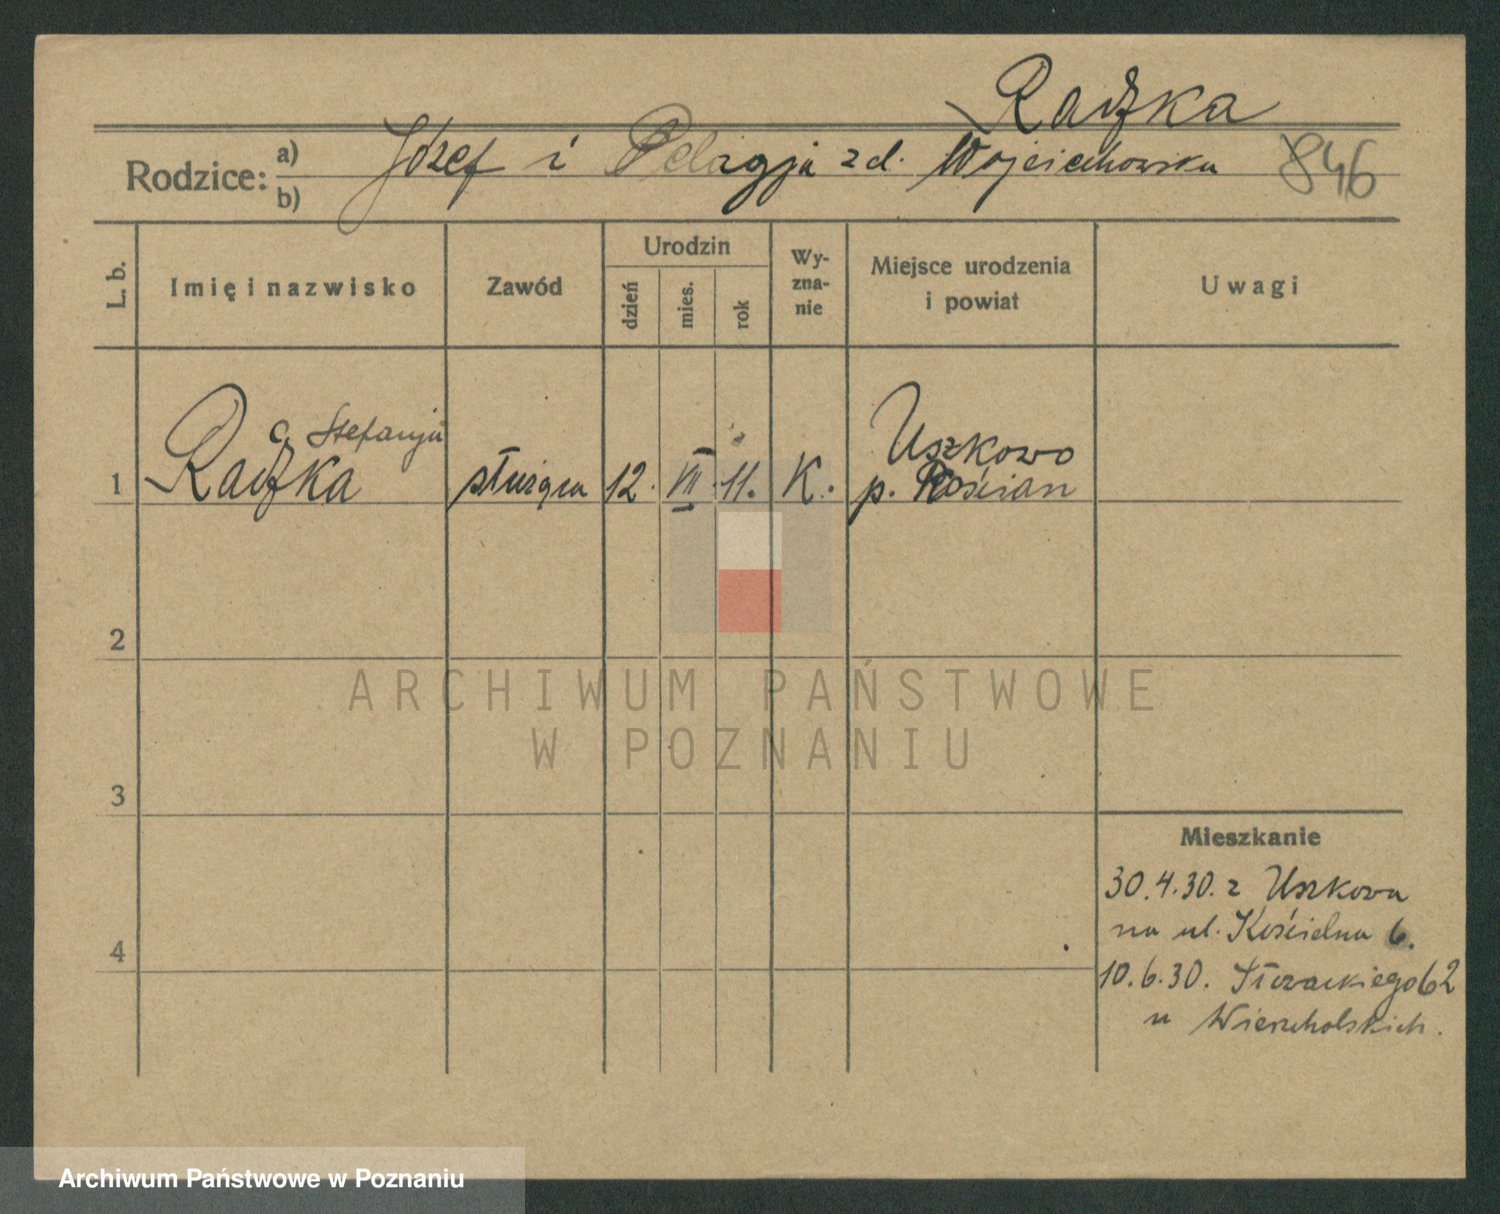 Raczka
Rodzice: a) Józef i Pelagja z d. Wojciechowska 846
b)
L. b.
Imię i nazwisko
Zawód
Urodzin
dzień
mies.
rok
Wy-
zna-
nie
Miejsce urodzenia
i powiat
Uwagi
c. Stefanja
1 Raczka służąca 12. VII. 11. K. Uszkowo
p. Kościan
2
ARCHIWUM PAŃSTWOWE
W POZNANIU
3
Mieszkanie
30.4.30. z Uszkowa
na ul. Kościelna 6.
4
10.6.30. Słowackiego 62
u
Archiwum Państwowe w Poznaniu